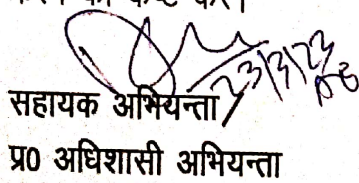 करने का कष्ट करें।
23/3/23
सहायक अभियन्ता
प्र0 अधिशासी अभियन्ता